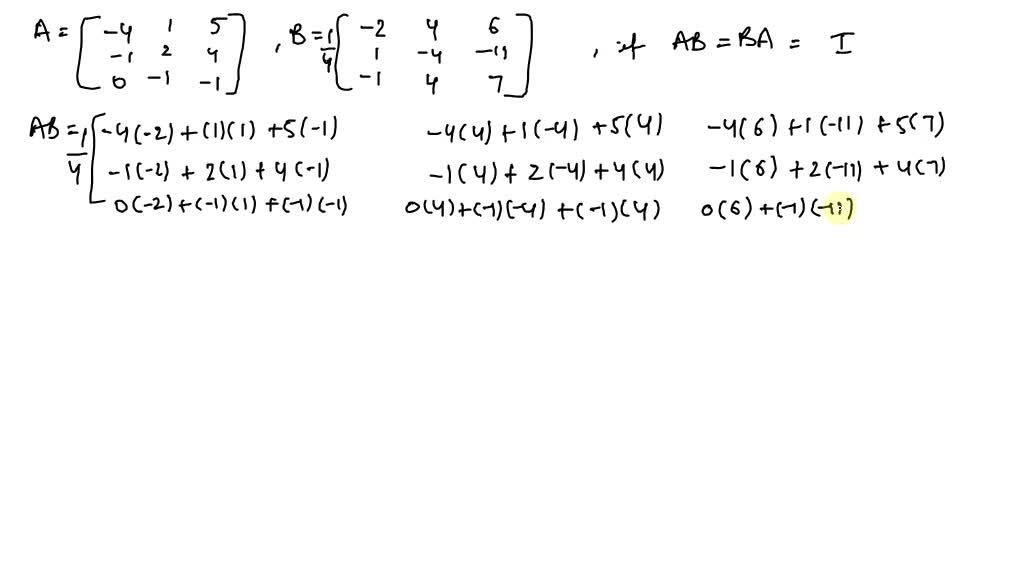 A = [ -4 1 5 , B = 1/4 [ -2 4 6 , if AB = BA = I
-1 2 4 1 -4 -11
0 -1 -1 ] -1 4 7 ]
AB = 1/4 [ -4(-2) + (1)(1) + 5(-1) -4(4) + 1(-4) + 5(4) -4(6) + 1(-11) + 5(7)
-1(-2) + 2(1) + 4(-1) -1(4) + 2(-4) + 4(4) -1(6) + 2(-11) + 4(7)
0(-2) + (-1)(1) + (-1)(-1) 0(4) + (-1)(-4) + (-1)(4) 0(6) + (-1)(-11)